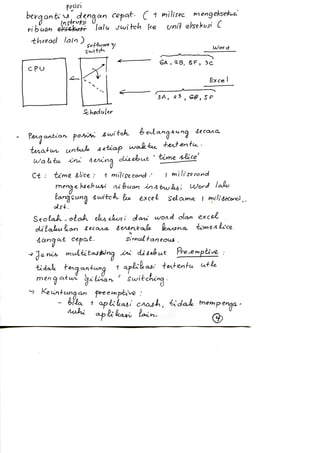 posisi
berganti² dengan cepat. ( 1 milisec mengeksekusi
instruksi
ribuan lalu switch ke unit eksekusi (
thread lain )
software
switch
Word
CPU
6A, 2B, 5F, 3C
Excel
3A, 43, 6B, 5D
Scheduler
- Pergantian posisi switch berlangsung secara
teratur untuk setiap waktu tertentu.
Waktu ini sering disebut 'time slice'
Ct : time slice : 1 milisecond : 1 milisecond
mengeksekusi ribuan instruksi Word lalu
langsung switch ke excel selama 1 milisecond,
dst.
Seolah-olah eksekusi dari word dan excel
dilakukan secara serentak karena time slice
sangat cepat. simultaneous
→ Jenis multitasking ini disebut Pre-emptive :
tidak tergantung 1 aplikasi tertentu utk
mengatur giliran² switching.
→ Keuntungan preemptive :
- bila 1 aplikasi crash, tidak mempenga-
ruhi aplikasi lain.
4